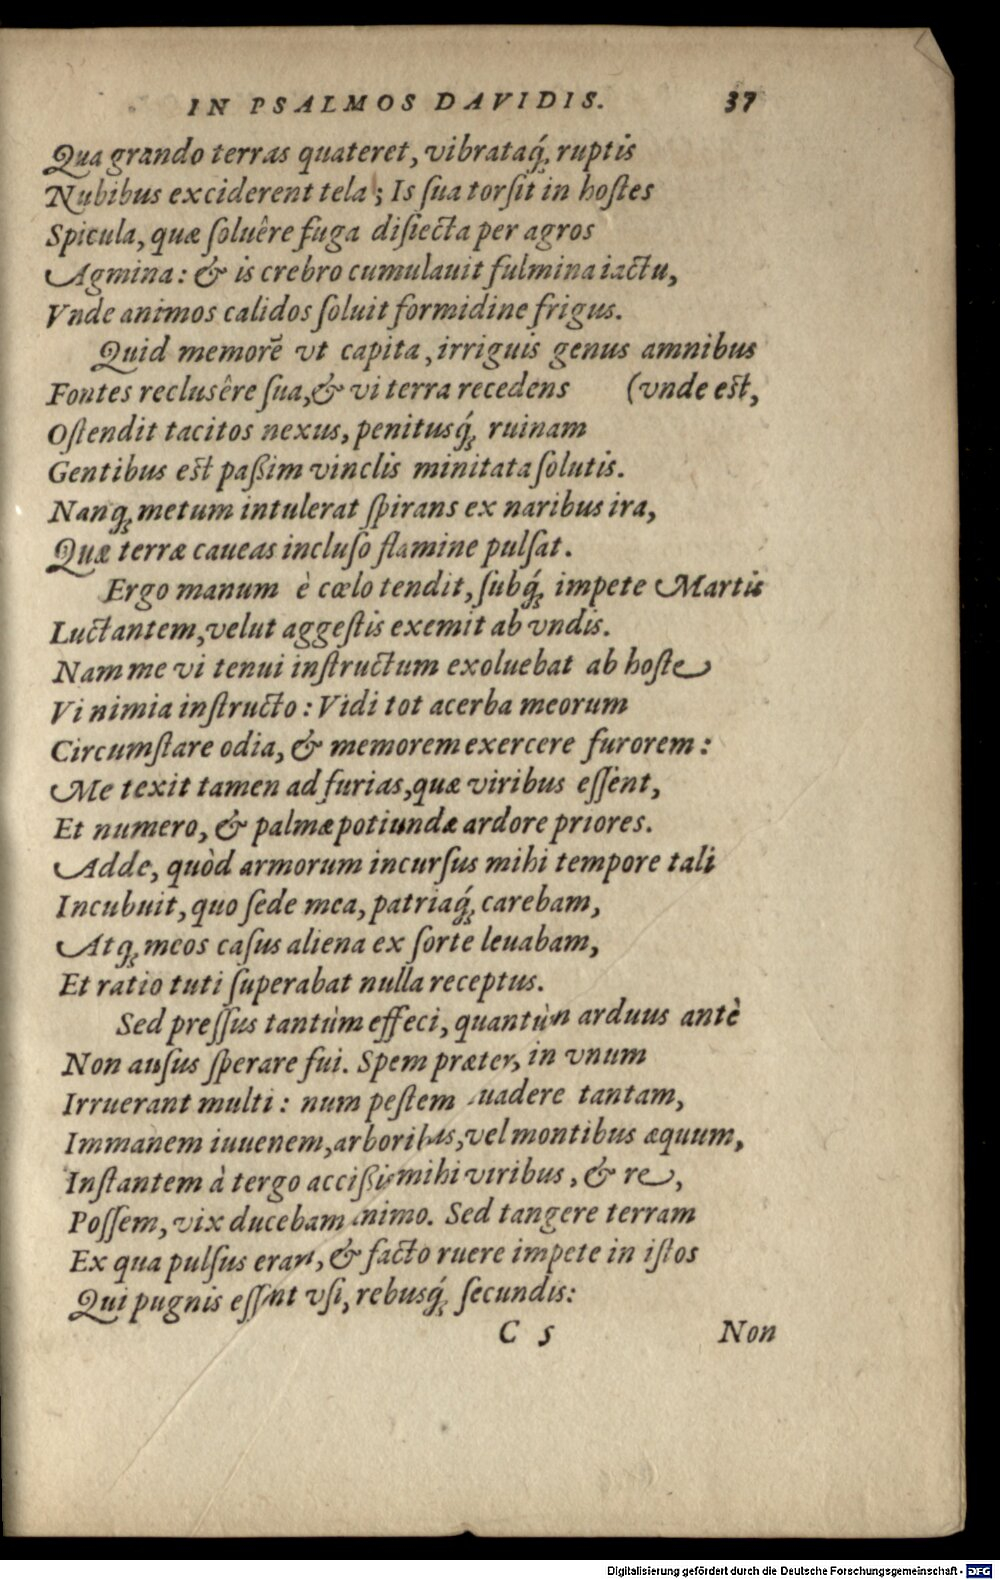 IN PSALMOS DAVIDIS. 37
Qua grando terras quateret, vibrataq́; ruptis
Nubibus exciderent tela; Is ſua torſit in hoſtes
Spicula, quæ ſoluêre fuga diſiecta per agros
Agmina: & is crebro cumulauit fulmina iactu,
Vnde animos calidos ſoluit formidine frigus.
Quid memorẽ vt capita, irriguis genus amnibus
Fontes reclusêre ſua, & vi terra recedens (vnde est,
Oſtendit tacitos nexus, penitusq́; ruinam
Gentibus est paßim vinclis minitata ſolutis.
Nanq; metum intulerat ſpirans ex naribus ira,
Quæ terræ caueas incluſo flamine pulſat.
Ergo manum è cœlo tendit, ſubq́; impete Martis
Luctantem, velut aggeſtis exemit ab vndis.
Nam me vi tenui inſtructum exoluebat ab hoſte
Vi nimia inſtructo: Vidi tot acerba meorum
Circumſtare odia, & memorem exercere furorem:
Me texit tamen ad furias, quæ viribus eſſent,
Et numero, & palmæ potiundæ ardore priores.
Adde, quòd armorum incurſus mihi tempore tali
Incubuit, quo ſede mea, patriaq́; carebam,
Atq; meos caſus aliena ex ſorte leuabam,
Et ratio tuti ſuperabat nulla receptus.
Sed preſſus tantùm effeci, quantùm arduus antè
Non auſus ſperare fui. Spem præter, in vnum
Irruerant multi: num peſtem uadere tantam,
Immanem iuuenem, arboribus, vel montibus æquum,
Inſtantem à tergo accißis mihi viribus, & re,
Poſſem, vix ducebam animo. Sed tangere terram
Ex qua pulſus eram, & facto ruere impete in iſtos
Qui pugnis eſſent vſi, rebusq́; ſecundis:
C 5 Non
Digitalisierung gefördert durch die Deutsche Forschungsgemeinschaft - DFG